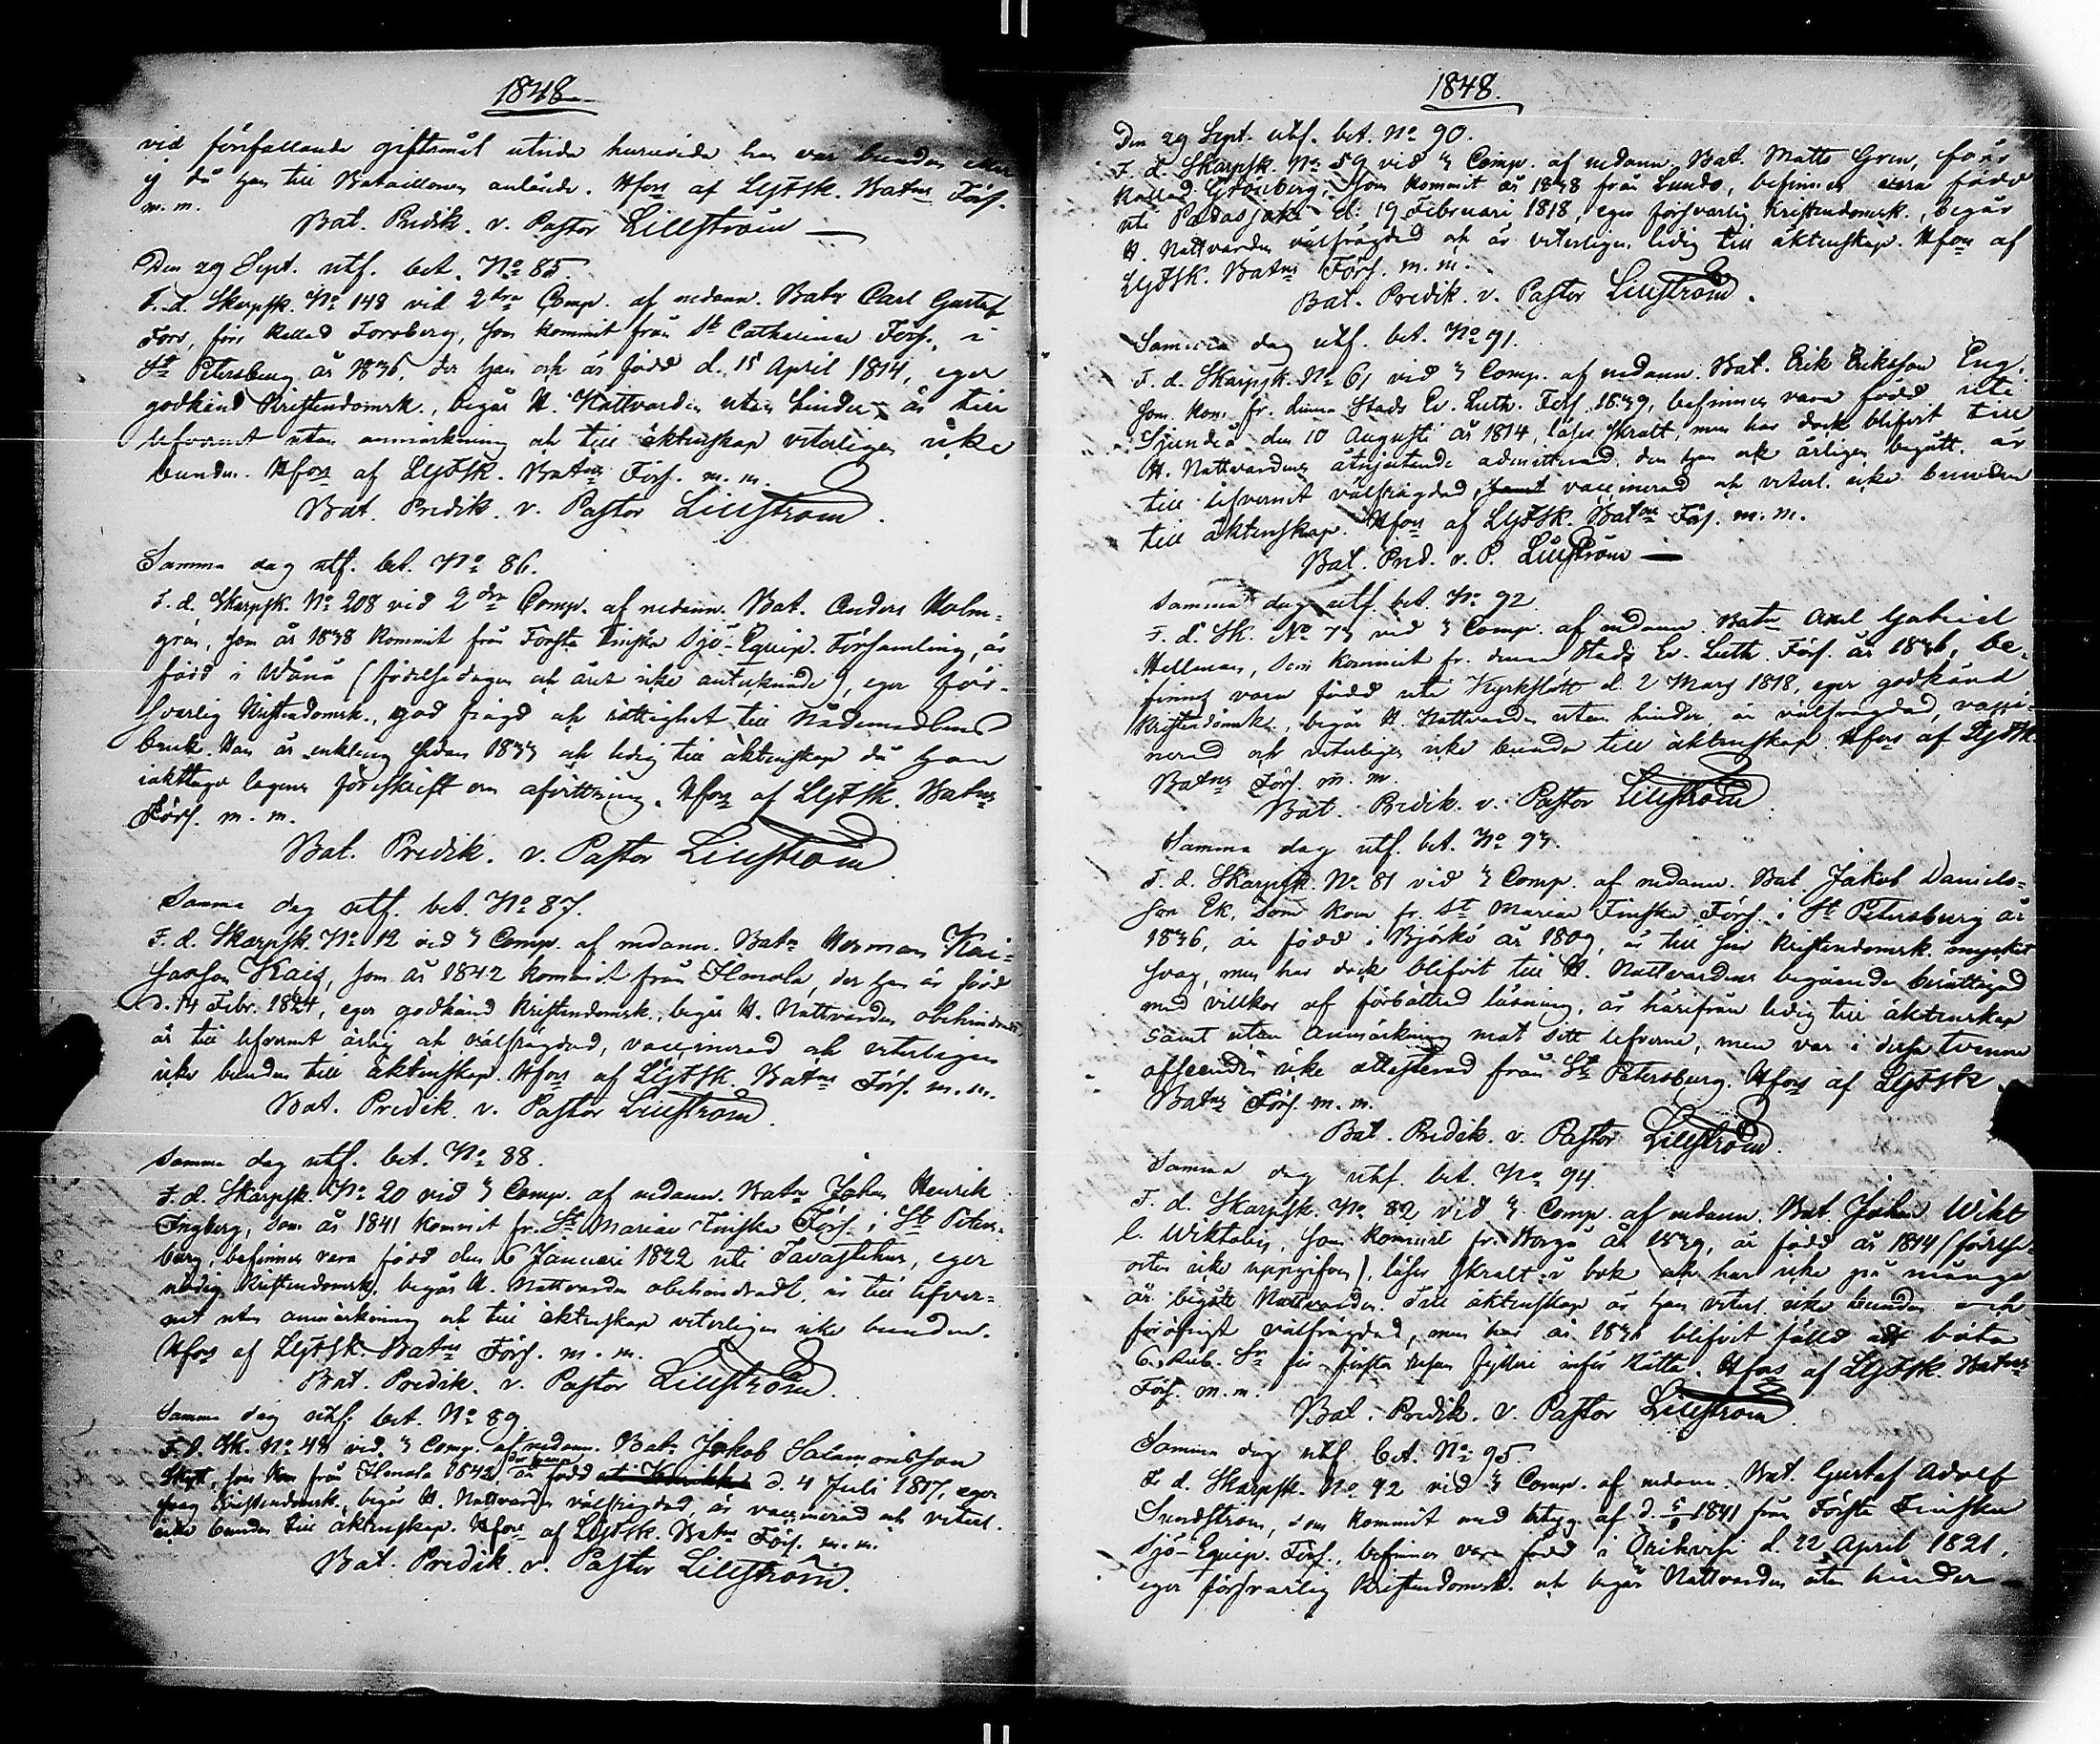 1848
vid förefallande giftermål utreda huruvida han var bunden eller
ej då han till Bataillonen anlände. Hfors af LgFSk. Batns Förs.
m. m.
Bat. Predik. v. Pastor Lillström
Den 29 Sept. utf. bet. No 85.
F. d. Skarpsk. No 148 vid 2dra Comp. af nedann. Batn Carl Gustaf
Fors, förr kallad Forsberg, som kommit från St Catharinae Förs. i
St Petersburg år 1836, der han ock är född d. 15 April 1814, eger
godkänd Kristendomsk., begår H. Nattvarden utan hinder, är till
lefvernet utan anmärkning och till äktenskap veterligen icke
bunden. Hfors af LgFSk. Batns Förs. m. m.
Bat. Predik. v. Pastor Lillström.
Samma dag utf. bet. No 86.
F. d. Skarpsk. No 208 vid 2dra Comp. af nedann. Bat. Anders Holm-
gren, som år 1838 kommit från Första Finska Sjö-Equip. Församling, är
född i Wånå (födelsedagen och året icke antecknade), eger för-
svarlig Kristendomsk., god frägd och rättighet till Nådemedlens
bruk. Han är enkling sedan 1833 och ledig till äktenskap då han
iakttager lagens föreskrift om afvittring. Hfors af LgFSk. Batns
Förs. m. m.
Bat. Predik. v. Pastor Lillström.
Samma dag utf. bet. No 87.
F. d. Skarpsk. No 12 vid 3 Comp. af nedann. Batn Herman Kai-
sasson Kaig, som år 1842 kommit från Ilmola, der han är född
d. 14 Febr. 1824, eger godkänd Kristendomsk., begår H. Nattvarden obehindradt,
är till lefvernet ärlig och välfrägdad, vaccinerad och veterligen
icke bunden till äktenskap. Hfors af LgFSk. Batns Förs. m. m.
Bat. Predik. v. Pastor Lillström.
Samma dag utf. bet. No 88.
F. d. Skarpsk. No 20 vid 3 Comp. af nedann. Batn Johan Henrik
Ingberg, som år 1841 kommit fr. St Mariae Finska Förs. i St Peters-
burg, befinnes vara född den 6 Januari 1822 uti Tavastehus, eger
nödig Kristendomsk., begår H. Nattvarden obehindradt, är till lefver-
net utan anmärkning och till äktenskap veterligen icke bunden.
Hfors af LgFSk. Batns Förs. m. m.
Bat. Predik. v. Pastor Lillström.
Samma dag utf. bet. No 89
F. d. Sk. No 48 vid 3 Comp. af nedann. Batn Jakob Salamonsson
Skytt, som kom från Ilmola 1842, der han är född d. 4 Juli 1817, eger
svag Kristendomsk., begår H. Nattvarden välfrägdad, är vaccinerad och veterl.
icke bunden till äktenskap. Hfors af LgFSk. Batns Förs. m. m.
Bat. Predik. v. Pastor Lillström.
1848.
Den 29 Sept. utf. bet. No 90.
F. d. Skarpsk. No 59 vid 3 Comp. af nedann. Bat. Matts Gren, förr
kallad Grönberg, som kommit år 1838 från Lundo, befinnes vara född
uti Padasjoki d. 19 Februari 1818, eger försvarlig Kristendomsk., begår
H. Nattvarden välfrägdad och är veterligen ledig till äktenskap. Hfors af
LgFSk. Batns Förs. m. m.
Bat. Predik. v. Pastor Lillström.
Samma dag utf. bet. No 91.
F. d. Skarpsk. No 61 vid 3 Comp. af nedann. Bat. Erik Eriksson Eng,
som kom fr. denna Stads Ev. Luth. Förs. 1839, befinnes vara född uti
Sjundeå den 10 Augusti år 1814, läser skralt, men har dock blifvit till
H. Nattvardens åtnjutande admitterad, den han ock årligen begått. är
till lefvernet välfrägdad, samt vaccinerad och veterl. icke bunden
till äktenskap. Hfors af LgFSk. Batns Förs. m. m.
Bat. Pred. v. P. Lillström
Samma dag utf. bet. No 92.
F. d. Sk. No 73 vid 3 Comp. af nedann. Batn Axel Gabriel
Hellman, som kommit fr. denna Stads Ev. Luth. Förs. år 1836, be-
finnes vara född uti Kyrkslätt d. 2 Mars 1818, eger godkänd
Kristendomsk., begår H. Nattvarden utan hinder, är välfrägdad, vacci-
nerad och veterligen icke bunden till äktenskap. Hfors af LgFSk.
Batns Förs. m. m.
Bat. Predik. v. Pastor Lillström.
Samma dag utf. bet. No 93.
F. d. Skarpsk. No 81 vid 3 Comp. af nedann. Bat. Jakob Daniels-
son Ek, som kom fr. St Mariae Finska Förs. i St Petersburg år
1836, är född i Björkö år 1809, är till sin Kristendomsk. mycket
svag, men har dock blifvit till H. Nattvardens begående berättigad
med villkor af förbättrad läsning, är härifrån ledig till äktenskap
samt utan anmärkning mot sitt lefverne, men var i dessa tvenne
afseenden icke attesterad från St Petersburg. Hfors af LgFSk.
Batns Förs. m. m.
Bat. Predik. v. Pastor Lillström.
Samma dag utf. bet. No 94.
F. d. Skarpsk. No 82 vid 3 Comp. af nedann. Bat. Johan Wikt
l. Wiktolin, som kommit fr. Borgå år 1839, är född år 1814 (födelse-
orten icke uppgifven), läser skralt i bok och har icke på många
år begått Nattvarden. Till äktenskap är han veterl. icke bunden och
föröfrigt välfrägdad, men har år 1836 blifvit fälld att böta
6 Rub. Sr för första resan fylleri inför Rätta. Hfors af LgFSk. Batns
Förs. m. m.
Bat. Predik. v. Pastor Lillström.
Samma dag utf. bet. No 95.
F. d. Skarpsk. No 92 vid 3 Comp. af nedann. Bat. Gustaf Adolf
Sundström, som kommit med betyg af d. 1841 från Första Finska
Sjö-Equip. Förs., befinnes vara född i Orihvesi d. 22 April 1821,
eger försvarlig Kristendomsk. och begår Nattvarden utan hinder